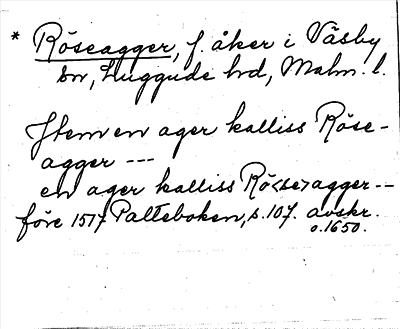 * Röseagger, f. åker i Väsby
sn, Luggude hd, Malm. l.
Jtem en ager kalliss Röse-
agger ---
en ager kalliss Rö<se>agger --
före 1517 Palteboken, s. 107. avskr.
o. 1650.